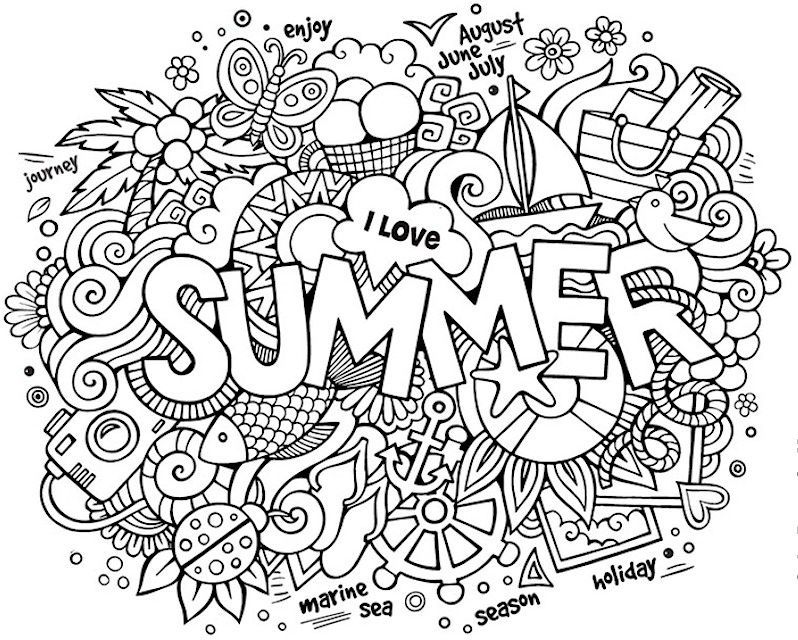 enjoy
August
June
July
journey
I Love
SUMMER
marine
sea
season
holiday